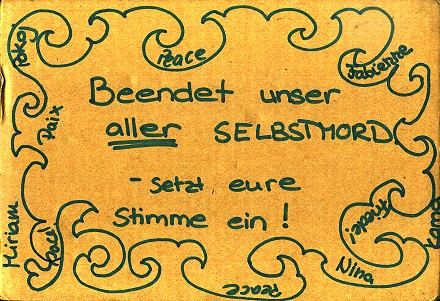 Pokoj
Peace
Fabienne
Paix
Beendet unser
aller SELBSTMORD
- setzt eure
Stimme ein!
Miriam
Friede!
Nina
Peace